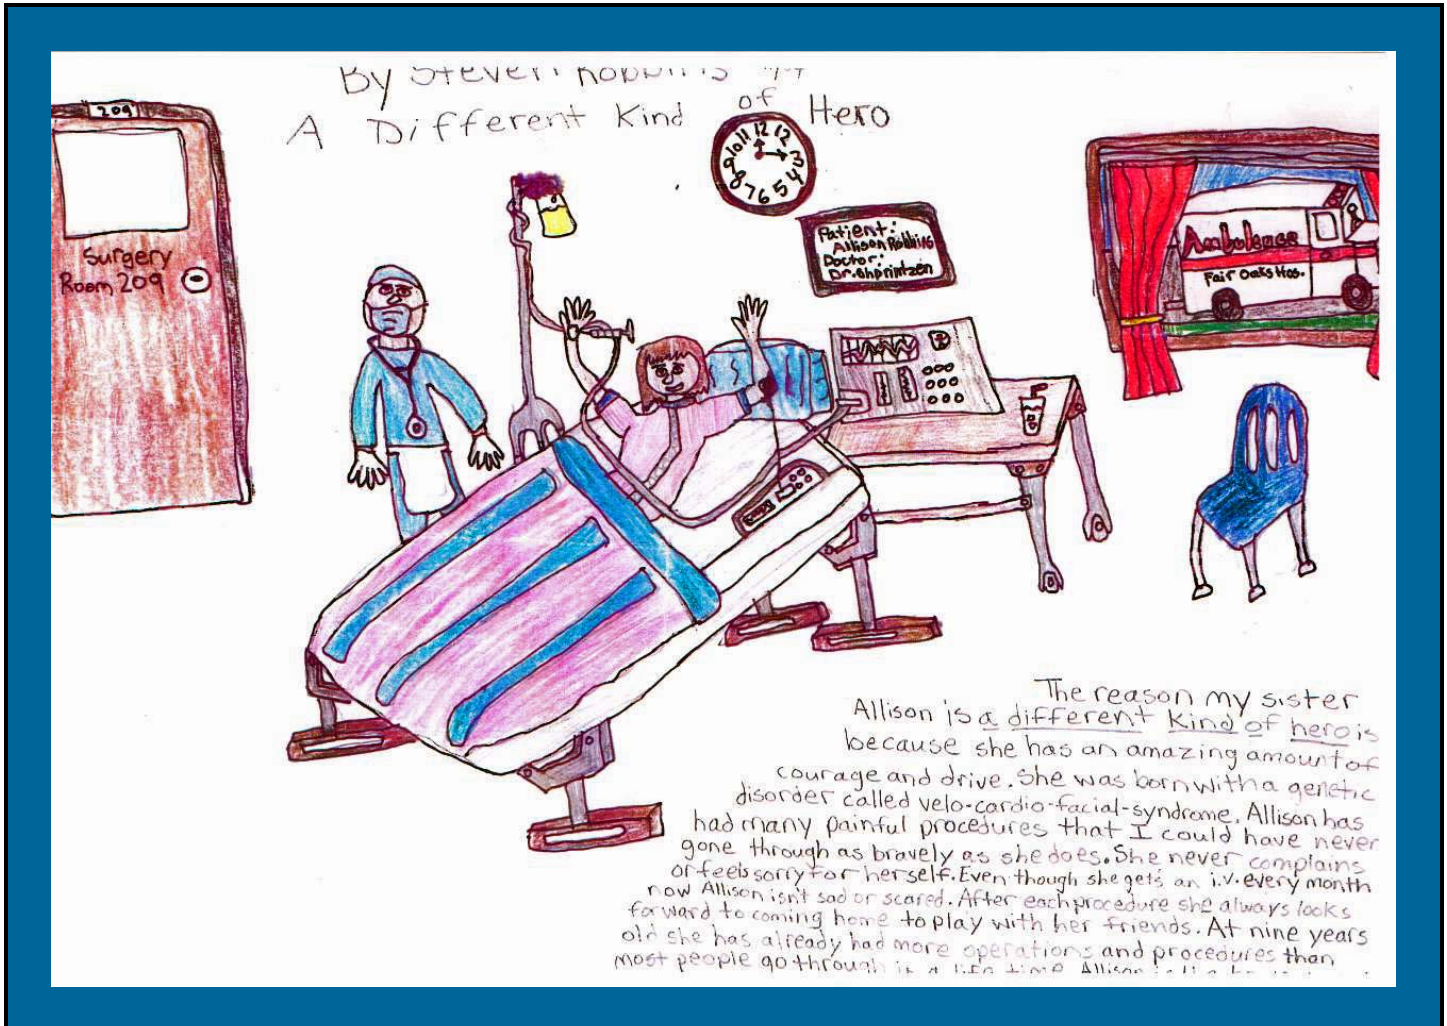 By Steven Robbins
A Different Kind of Hero
209
Surgery
Room 209
11 12 12
10
9 3
8 4
7 6 5
Patient:
Allison Robbins
Doctor:
Dr. Shprintzen
Ambulance
Fair Oaks Hos.
The reason my sister
Allison is a different kind of hero is
because she has an amazing amount of
courage and drive. She was born with a genetic
disorder called velo-cardio-facial-syndrome. Allison has
had many painful procedures that I could have never
gone through as bravely as she does. She never complains
or feels sorry for herself. Even though she gets an i.v. every month
now Allison isn't sad or scared. After each procedure she always looks
forward to coming home to play with her friends. At nine years
old she has already had more operations and procedures than
most people go through in a life time. Allison